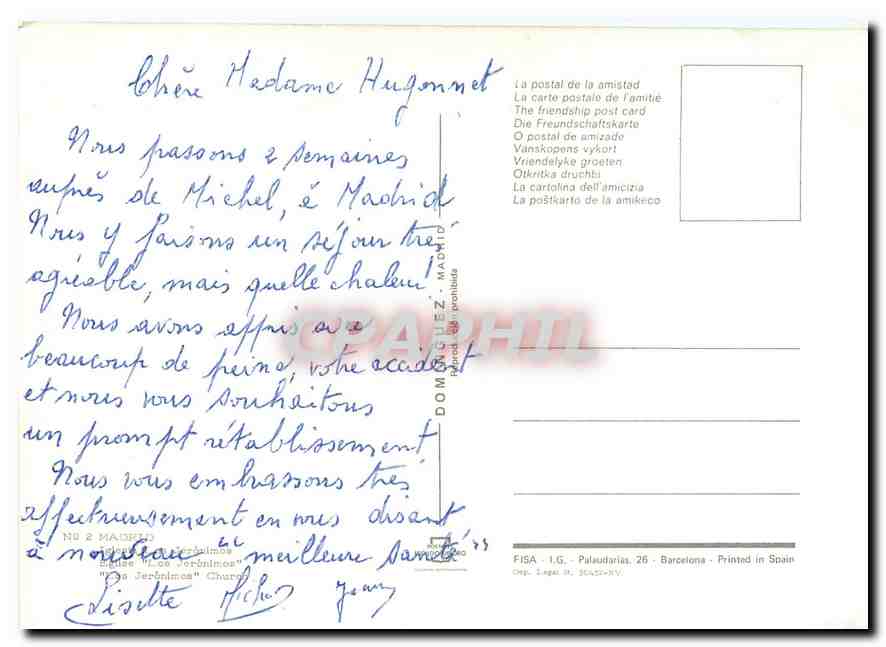 Chère Madame Hugonnet
Nous passons 2 semaines
auprès de Michel, à Madrid
Nous y faisons un séjour très
agréable, mais quelle chaleur!
Nous avons appris avec
beaucoup de peine, votre accident
et nous vous souhaitons
un prompt rétablissement
Nous vous embrassons très
affectueusement en vous disant
à nouveau "meilleure santé"
Lisette Michel
No 2 MADRID
Iglesia Los Jerónimos
Eglise "Los Jerónimos"
"Los Jerónimos" Church
DOMINGUEZ - MADRID
Reproducción prohibida
CPAPHIL
La postal de la amistad
La carte postale de l'amitié
The friendship post card
Die Freundschaftskarte
O postal de amizade
Vanskopens vykort
Vriendelyke groeten
Otkritka druchbi
La cartolina dell'amicizia
La poŝtkarto de la amikeco
FISA - I.G. - Palaudarias, 26 - Barcelona - Printed in Spain
Dep. Legal B.